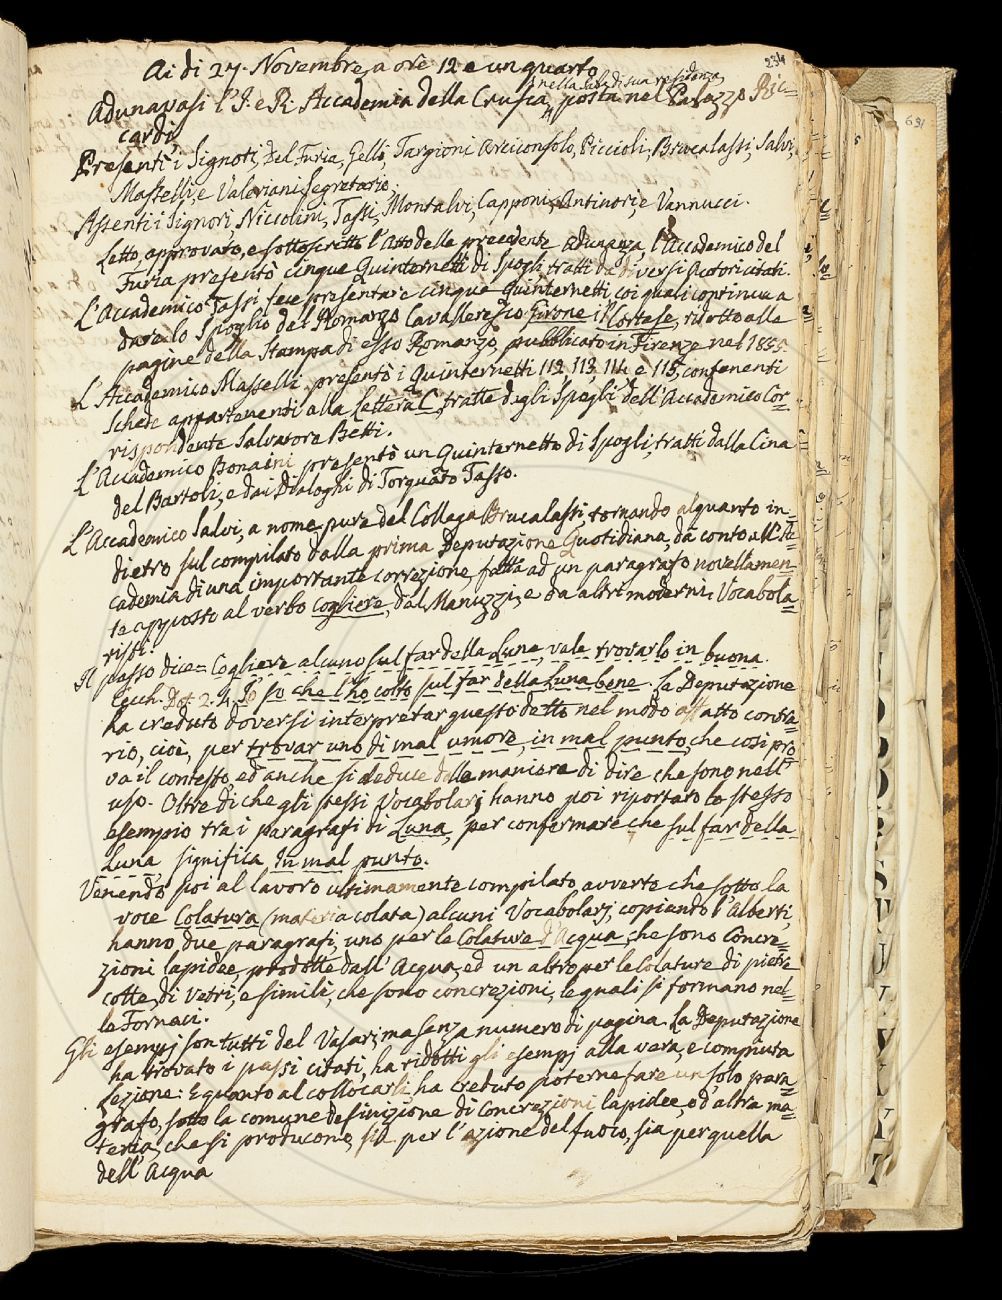 234
Ai di 27. Novembre, a ore 12 e un quarto
nella Sala di sua residenza,
Adunavasi l'I. e R. Accademia della Crusca, posta nel Palazzo Ric=
cardi,
Presenti i Signori, Del Furia, Gelli, Targioni Arciconsolo, Piccioli, Brucalassi, Salvi,
Masselli, e Valeriani Segretario,
Assenti i Signori, Niccolini, Tassi, Montalvi, Capponi, Antinori, e Vannucci.
Letto, approvato, e sottoscritto l'Atto delle precedente adunanza, l'Accademico del
Furia presentò cinque Quinternetti di Spogli tratti da diversi Autori citati.
L'Accademico Tassi fece presentare cinque Quinternetti, coi quali continua a
dare lo Spoglio del Romanzo Cavalleresco Girone il Cortese, ridotto alle
pagine della Stampa di esso Romanzo, pubblicato in Firenze nel 1855.
L'Accademico Masselli presentò i Quinternetti 112, 113, 114 e 115, contenenti
Schede appartenenti alla Lettera C, tratte degli Spogli dell'Accademico Cor=
rispondente Salvatore Betti.
L'Accademico Bonaini presentò un Quinternetto di Spogli, tratti dalla Cina
del Bartoli, e dai Dialoghi di Torquato Tasso.
L'Accademico Salvi, a nome pure del Collega Brucalassi tornando alquanto in=
dietro sul compilato dalla prima Deputazione Quotidiana, dà conto all'Ac=
cademia di una importante correzione fatta ad un paragrafo novellamen=
te apposto al verbo cogliere, dal Manuzzi, e da altri moderni Vocabola=
risti.
Il passo dice = Cogliere alcuno sul far della Luna, vale trovarlo in buona.
Cecch. Dot. 2. 4. Io so che l'ho colto sul far della Luna bene. La Deputazione
ha creduto doversi interpretar questo detto nel modo affatto contra=
rio, cioè, per trovar uno di mal umore, in mal punto, che così pro=
va il contesto, ed anche si deduce dalle maniere di dire che sono nell'
uso. Oltre di che gli stessi Vocabolarj hanno poi riportato lo stesso
esempio tra i paragrafi di Luna, per confermare che sul far della
Luna significa In mal punto.
Venendo poi al lavoro ultimamente compilato, avverte che sotto la
voce Colatura (materia colata) alcuni Vocabolarj, copiando l'Alberti,
hanno due paragrafi, uno per le Colature d'Acqua, che sono Concre=
zioni lapidee, prodotte dall'Acqua, ed un altro per le Colature di pietre
cotte, di Vetri, e simili, che sono concrezioni, le quali si formano nel=
le Fornaci.
Gli esempj son tutti del Vasari, ma senza numero di pagina. La Deputazione
ha trovato i passi citati, ha ridotti gli esempj alla vera, e compiuta
Lezione: E quanto al collocarli, ha creduto poterne fare un solo para=
grafo, sotto la comune definizione di Concrezioni lapidee, o d'altra ma=
teria, che si producono, sia per l'azione del fuoco, sia per quella
dell'Acqua